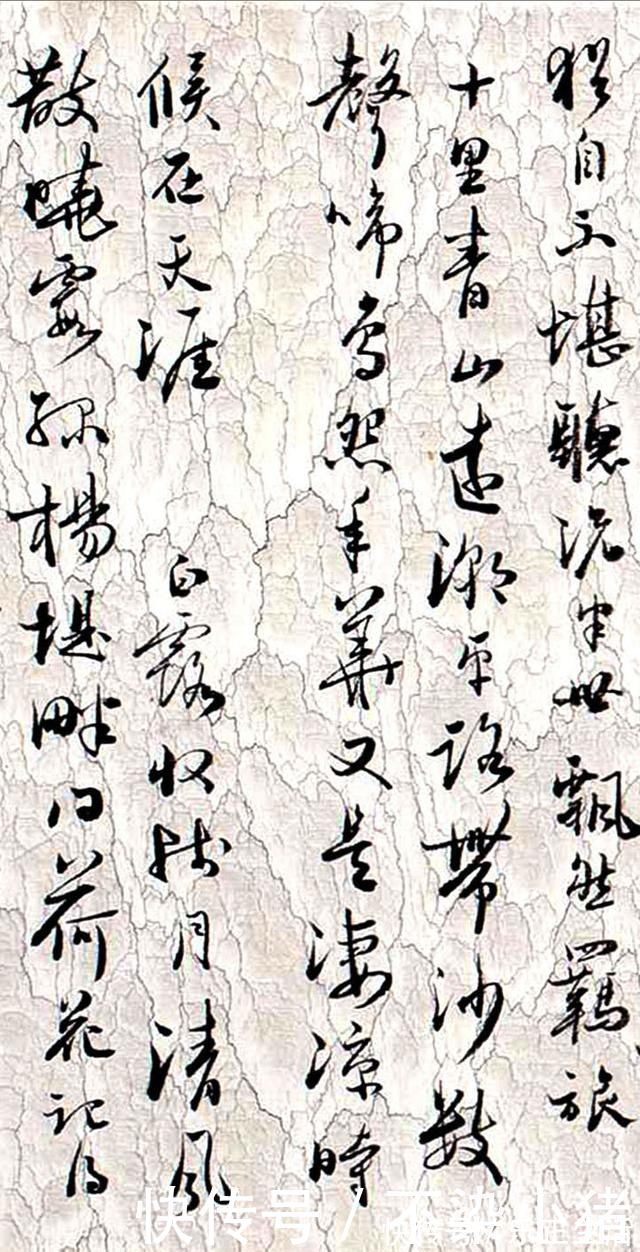 猶自不堪聽況半世飄然羈旅
十里青山遠潮平路帶沙數
聲啼鳥怨年華又是淒涼時
候在天涯 白露收殘月清風
散曉霞綠楊堤畔問荷花記得
快传号/不染小猪